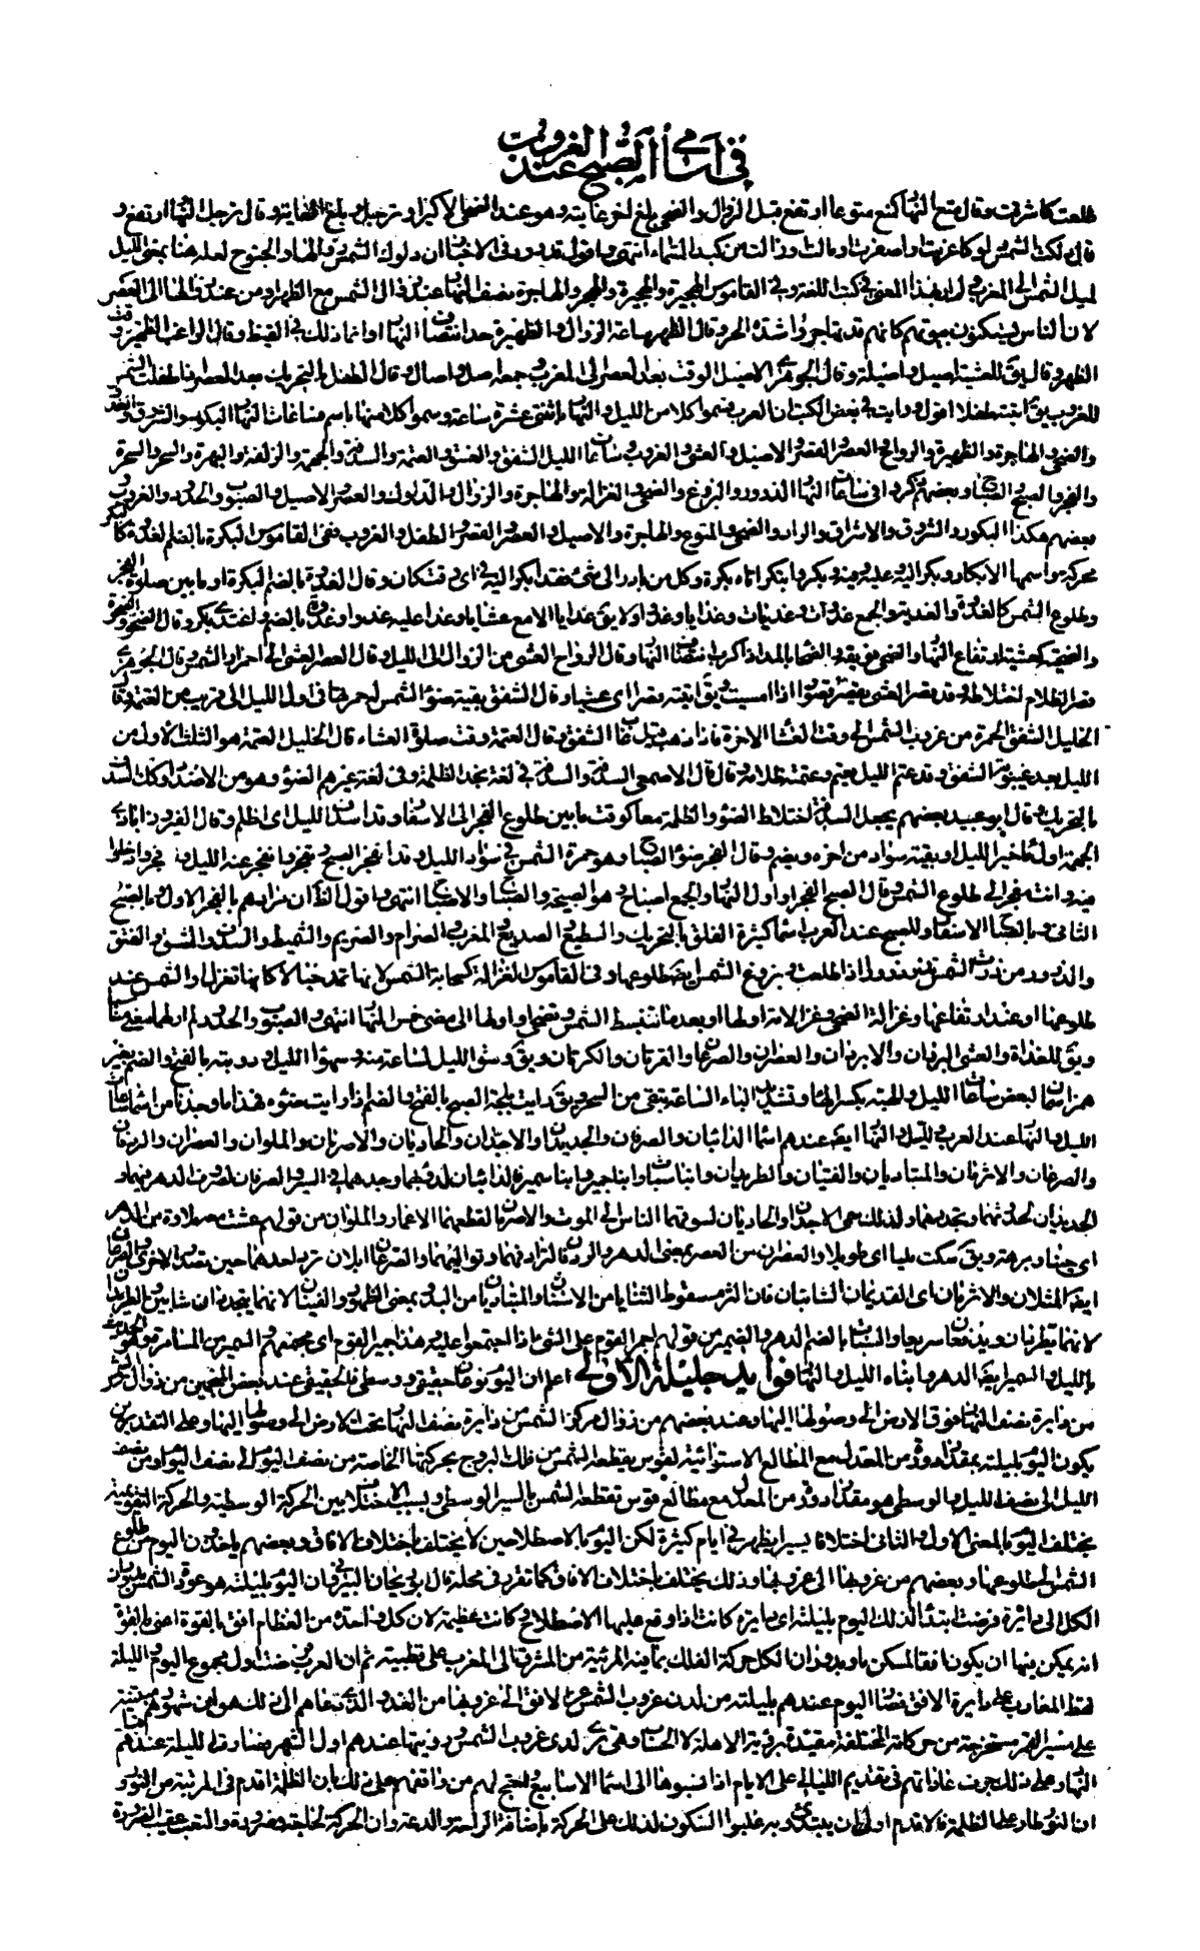 في أسامي الصبح عند الغروب
طلعت كأشرقت وقال متع النهار كمنع متوعا ارتفع قبل الزوال والضحى بلغ آخر غايته وهو عند الضحى الأكبر أو ترجل وبلغ الغاية وقال ترجل النهار ارتفع و
قال دلكت الشمس دلوكا غربت واصفرت ومالت وزالت من كبد السماء انتهى وأقول قد ورد في الأخبار أن دلوك الشمس زوالها والجنوح لعله هنا بمعنى الليل
لميل الشمس إلى المغرب ولم أر بهذا المعنى في كتب اللغة وفي القاموس الهجير والهجيرة والهجر والهاجرة نصف النهار عند زوال الشمس مع الظهر أو من عند زوالها إلى العصر
لأن الناس يستكنون في بيوتهم كأنهم قد تهاجروا شدة الحر وقال الظهر ساعة الزوال والظهيرة حد انتصاف النهار أو إنما ذلك في القيظ وقال الراغب الظهيرة وقت
الظهر وقال يق للعشية أصيل وأصيلة وقال الجوهري الأصيل الوقت بعد العصر إلى المغرب وجمعه أصل وآصال وقال الطفل بالتحريك بعد العصر إذا طفلت الشمس
للغروب يق أتيته طفلا أقول ورأيت في بعض الكتب أن العرب قسموا كلا من الليل والنهار باثنتي عشرة ساعة وسموا كلا منها باسم فساعات النهار البكور والشروق والغدو
والضحى والهاجرة والظهيرة والرواح والعصر والقصر والأصيل والعشي والغروب وساعات الليل الشفق والغسق والعتمة والسدفة والجهمة والزلفة والبهرة والسحر والسحرة
والفجر والصبح والصباح وبعضهم ذكروا في ساعات النهار الذرور والبزوغ والضحى والغزالة والهاجرة والزوال والدلوك والعصر والأصيل والصبوب والحدور والغروب
بعضهم هكذا البكور والشروق والإشراق والراد والضحى والمتوع والهاجرة والأصيل والعصر والقصر والطفل والغروب ففي القاموس البكرة بالضم الغدوة كالبكر
محركة واسمها الإبكار وبكر إليه وعليه وفيه وبكر وابتكر أتاه بكرة وكل من بادر إلى شيء فقد أبكر إليه في أي وقت كان وقال الغدوة بالضم البكرة أو ما بين صلوة الفجر
وطلوع الشمس كالغداة والغدية والجمع غدوات وغديات وغدايا وغدو أو لا يق غدايا إلا مع عشايا وغدا عليه غدوا وغدوة بالضم واغتدى بكر وقال الضحو والضحوة
والضحية كعشية ارتفاع النهار والضحى فويقه والضحاء بالمد إذا كرب انتصاف النهار وقال الرواح العشي أو من الزوال إلى الليل وقال العصر العشي إلى احمرار الشمس وقال الجوهري
قصر الظلام اختلاطه وقد قصر العشي يقصر قصورا إذا أمسيت ويق أتيته قصرا أي عشيا وقال الشفق بقية ضوء الشمس وحمرتها في أول الليل إلى قريب من العتمة وقال
الخليل الشفق الحمرة من غروب الشمس إلى وقت العشاء الآخرة فإذا ذهب قيل غاب الشفق وقال العتمة وقت صلوة العشاء قال الخليل العتمة هو الثلث الأول من
الليل بعد غيبوبة الشفق وقد عتم الليل يعتم وعتمته ظلامه وقال قال الأصمعي السدفة والسدفة في لغة نجد الظلمة وفي لغة غيرهم الضوء وهو من الأضداد وكذلك السدف
بالتحريك وقال أبو عبيد بعضهم يجعل السدفة اختلاط الضوء والظلمة معا كوقت ما بين طلوع الفجر إلى الإسفار وقد أسدف الليل أي أظلم وقال الفيروزآبادي
الجهمة أول مآخير الليل أو بقية سواد من آخره ويضم وقال الفجر ضوء الصباح وهو حمرة الشمس في سواد الليل وقد انفجر الصبح وتفجر وانفجر عنه الليل وأفجروا دخلوا
فيه وأنت مفجر إلى طلوع الشمس وقال الصبح الفجر أو أول النهار والجمع أصباح وهو الصبيحة والصباح والإصباح انتهى وأقول الظ أن مرادهم بالفجر الأول وبالصبح
الثاني وبالصباح الإسفار وللصبح عند العرب أسماء كثيرة الفلق بالتحريك والسطيع والصديع والمغرب والصرام والصريم والشميط والسدف والشق والفتق
والذرور من ذرت الشمس تذر ذرورا إذا طلعت وبزوغ الشمس أيضا طلوعها وفي القاموس الغزالة كسحابة الشمس لأنها تمد حبالا كأنها تغزل أو الشمس عند
طلوعها أو عند ارتفاعها وغزالة الضحى وغزالاته أولها أو بعد ما تنبسط الشمس وتضحى أو أولها إلى مضي خمس النهار انتهى
ويق للغداة والعشي البردان والأبردان والعصران والصرعان والقرتان والكرتان ويق وسق الليل لساعة منه وسهواء الليل ورؤبته بالفتح والضم بغير
الليل والنهار عند العرب ولليل والنهار أيضا عندهم أسماء الدائبان والصرفان والجديدان والأجدان والحاديان والأصرمان والملوان والعصران والردفان
والصرعان والأثرمان والمتباديان والفتيان والطريدان وابنا سبات وابنا جمير وابنا سمير فالدائبان لدؤبهما وجدهما في السير والصرفان لصرف الدهر فيهما و
الجديدان لحدثهما وتجددهما وكذلك سمي الأجدان والحاديان لسوقهما الناس إلى الموت والأصرمان لقطعهما الأعمار والملوان من قولهم عشت معه ملاوة من الدهر
أي حينا وبرهة ويق سكت مليا أي طويلا والعصران من العصر بمعنى الدهر والردفان لترادفهما وتواليهما والصرعان إبلان ترد إحداهما حين تصدر الأخرى
أيضا المثلان والأثرمان أي القديمان الشائبان فإن الثرم سقوط الثنايا من الأسنان والمتباديان من البدو بمعنى الظهور والفتيان لأنهما يتجددان شابين والطريدان
لأنهما يطردان ويدفعان سريعا والسبات بالضم الدهر والجمير من قولهم أجمر القوم على الشيء إذا اجتمعوا عليه وهذا جمير القوم أي مجمعهم والسمير من المسامرة
بالليل والسمير أيضا الدهر وابناه الليل والنهار فوائد جليلة الأولى اعلم أن اليوم نوعان حقيقي ووسطي فالحقيقي عند بعض المنجمين من زوال مركز الشمس
من دائرة نصف النهار فوق الأرض إلى وصولها إليها وعند بعضهم من زوال مركز الشمس من دائرة نصف النهار تحت الأرض إلى وصولها إليها وعلى التقديرين
يكون اليوم بليلته بمقدار دورة من المعدل مع المطالع الاستوائية لقوس يقطعه الشمس من فلك البروج بحركتها الخاصة من نصف اليوم إلى نصف اليوم أو من نصف
الليل إلى نصف الليل والوسطي هو مقدار دورة من المعدل مع مطالع قوس تقطعه الشمس بالسير الوسطي وبسبب الاختلاف بين الحركة الوسطية والحركة التقويمية
يختلف اليوم بالمعنى الأول والثاني اختلافا يسيرا يظهر في أيام كثيرة لكن اليوم بالاصطلاحين لا يختلف باختلاف الآفاق وبعضهم يأخذون اليوم من طلوع
الشمس إلى طلوعها وبعضهم من غروبها إلى غروبها وذلك يختلف باختلاف الآفاق كما تقرر في محله قال أبو ريحان البيروني إن اليوم بليلته هو عود الشمس بدوران
الكل إلى دائرة فرضت ابتداء لذلك اليوم بليلته أي دائرة كانت إذا وقع عليها الاصطلاح وكانت عظيمة لأن كل واحدة من العظام أفق بالقوة أعني بالقوة
أنه يمكن فيها أن يكون أفقا لمسكن ما وبدوران الكل حركة الفلك بما فيه المرئية من المشرق إلى المغرب على قطبيه ثم إن العرب فرضت أول مجموع اليوم والليلة
نقط المغارب على دائرة الأفق فصار اليوم عندهم بليلته من لدن غروب الشمس عن الأفق إلى غروبها من الغد والذي دعاهم إلى ذلك هو أن شهورهم مبنية
على مسير القمر مستخرجة من حركاته المختلفة مقيدة برؤية الأهلة لا الحساب وهي ترى لدى غروب الشمس ورؤيتها عندهم أول الشهر فصارت الليلة عندهم قبل
النهار وعلى ذلك جرت عاداتهم في تقديم الليالي على الأيام إذا نسبوها إلى أسماء الأسابيع واحتج لهم من وافقهم على ذلك بأن الظلمة أقدم في المرتبة من النور و
أن النور طار على الظلمة فالأقدم أولى أن يبتدئ به وغلبوا السكون لذلك على الحركة بإضافة الراحة والدعة وأن الحركة لحاجة وضرورة والتعب عقيب الضرورة